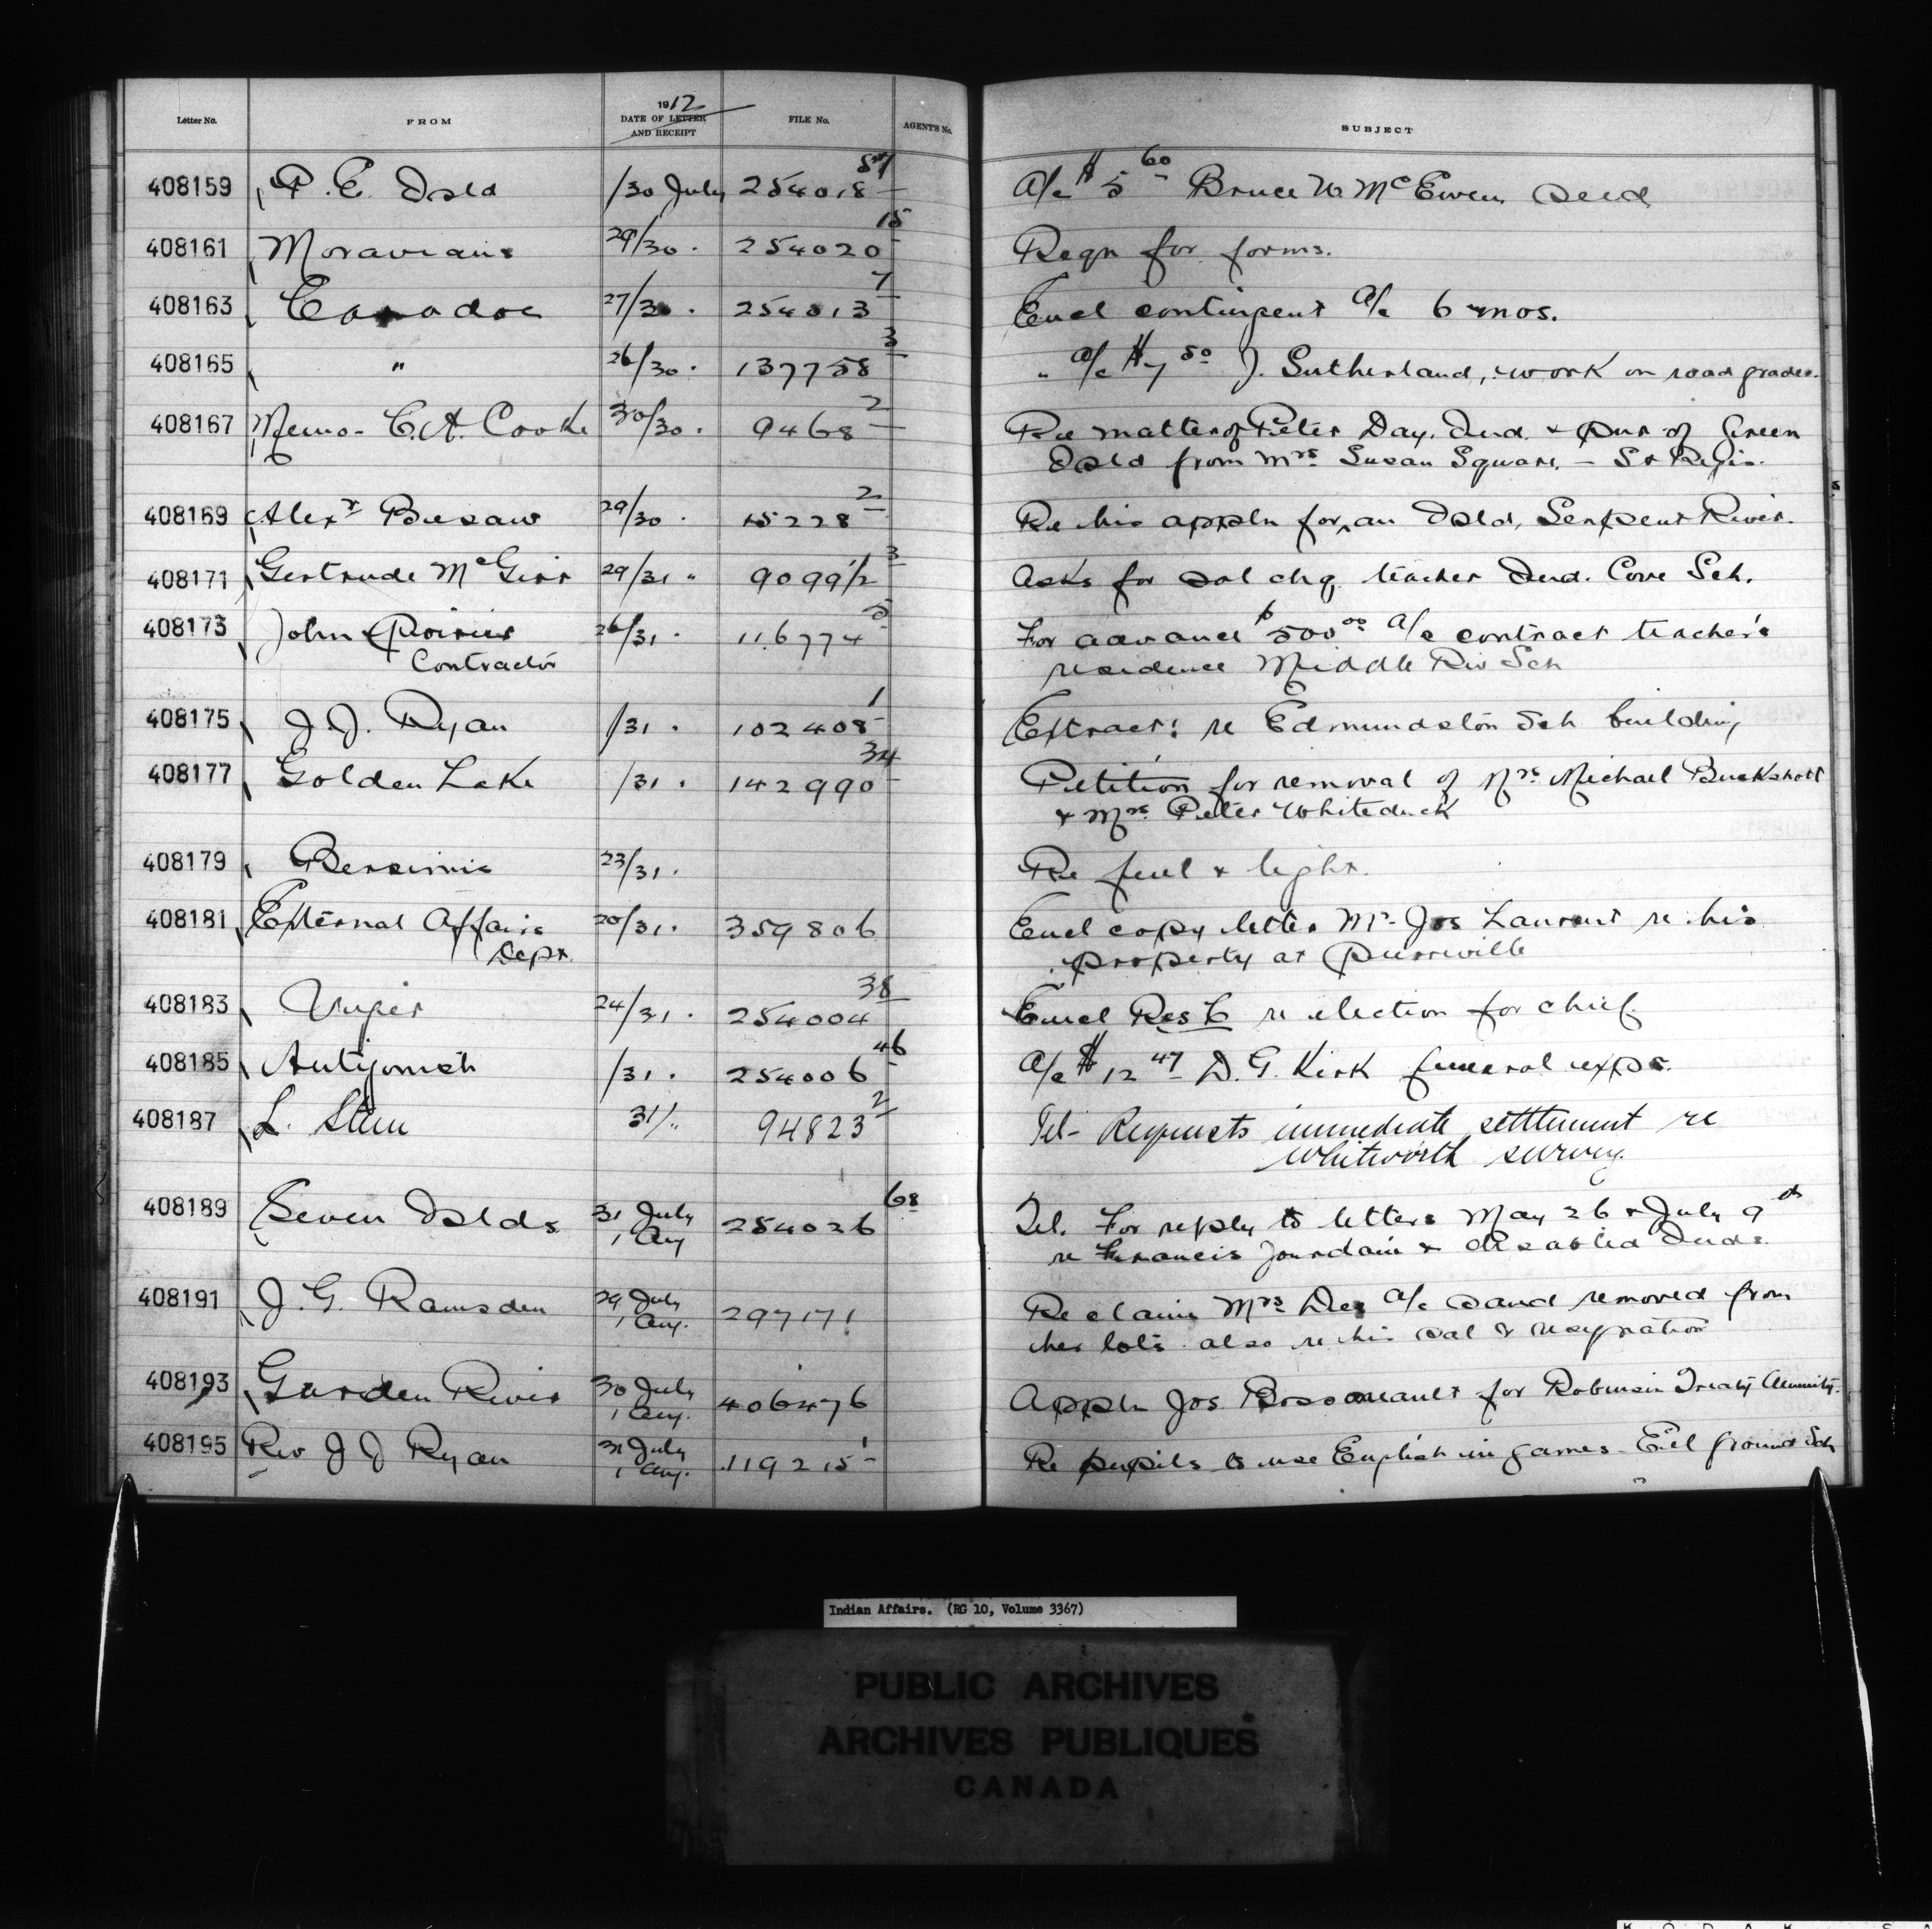 Letter No. FROM 1912 DATE OF LETTER AND RECEIPT FILE No. AGENT'S No. SUBJECT
408159 P. E. Isld /30 July 254018 57 A/c $5 60 Bruce W. McEwen seed
408161 Moravians 29/30 . 254020 15 Reqn for forms.
408163 Caradoc 27/30 . 254013 7 Encl contingent A/c 6 mos.
408165 " 26/30 . 137758 3 " A/c $7 50 J. Sutherland, work on road grader.
408167 Memo - C. A. Cooke 30/30 . 9468 2 Re matter of Peter Day, Ind. & pur of Green
Isld from Mrs Susan Square. - St Regis.
408169 Alexr Busaw 29/30 . 15228 2 Re his appln for an Isld, Serpent River.
408171 Gertrude McGirr 29/31 " 9099 1/2 3 Asks for sal chq. teacher Ind. Cove Sch.
408173 John Poirier 26/31 . 116774 5 For advance $500 00 A/c contract teacher's
Contractor residence Middle Riv Sch
408175 J. J. Ryan /31 . 102408 1 Extract: re Edmundston Sch building
408177 Golden Lake /31 . 142990 34 Petition for removal of Mrs Michael Buckshott
& Mrs Peter Whiteduck
408179 Bersimis 23/31 . Re fuel & light.
408181 External Affairs 20/31 . 359806 Encl copy letter Mr Jos Laurent re his
Dept. property at Pierreville
408183 Viger 24/31 . 254004 38 Encl Res C re election for chief.
408185 Antigonish /31 . 254006 46 A/c $12 47 D. G. Kirk funeral exps.
408187 L. Stein 31/ " 94823 2 Tel - Requests immediate settlement re
Whitworth survey.
408189 Seven Islds. 31 July 1 Aug 254026 68 Tel. For reply to letters May 26 & July 9th
re Francis Jourdain & disabled Inds.
408191 J. G. Ramsden 29 July 1 Aug. 297171 Re claim Mrs A/c sand removed from
her lots also re his sal & resignation
408193 Garden River 30 July 1 Aug. 406476 Appln Jos for Robinson Treaty Annuity.
408195 Rev J J Ryan 31 July 1 Aug. 119215 1 Re pupils to use English in games - Eel ground Sch
Indian Affairs. (RG 10, Volume 3367)
PUBLIC ARCHIVES
ARCHIVES PUBLIQUES
CANADA